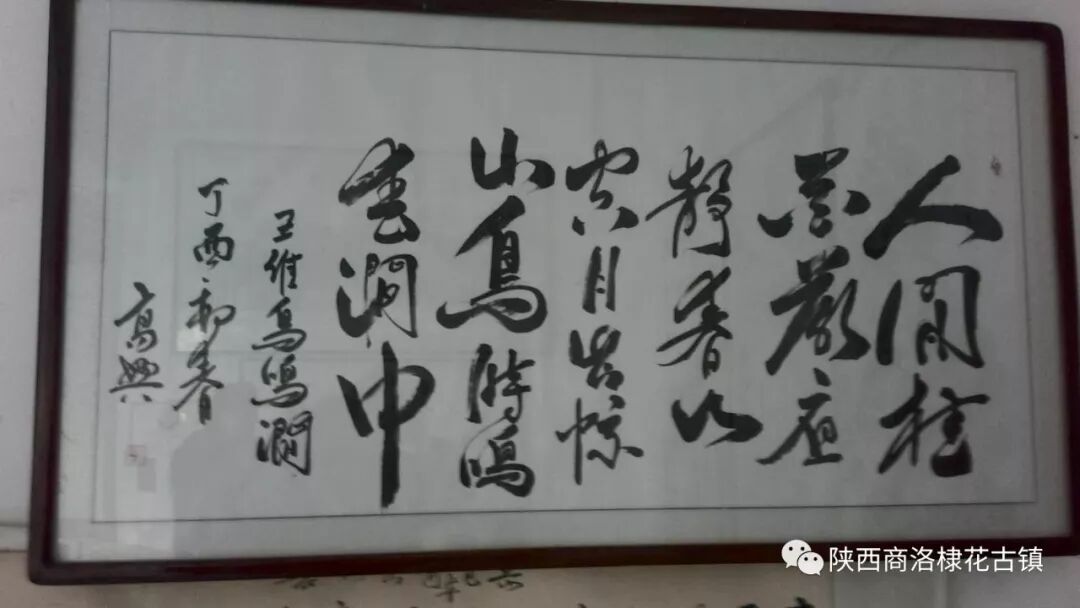 人閒桂
花落夜
靜春山
空月出驚
山鳥時鳴
春澗中
王維鳥鳴澗
丁酉初春
高興
陕西商洛棣花古镇